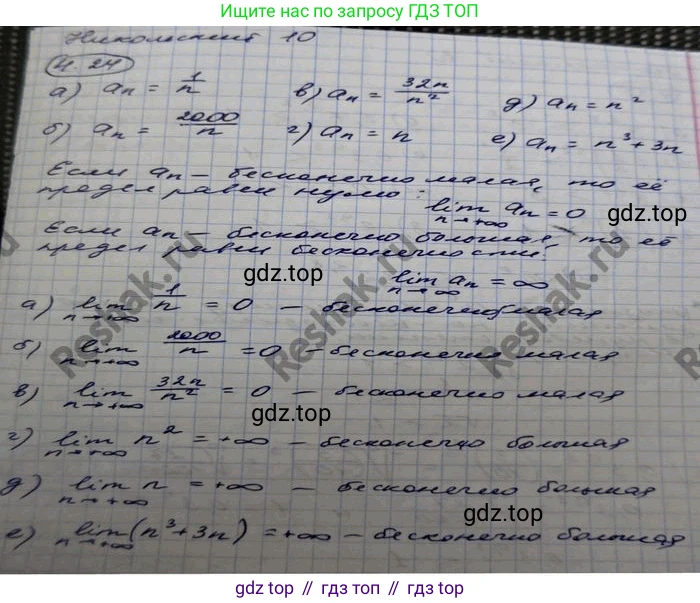 Ищите ответы на сайте ГДЗ ТОП
Никольский 10
4.24
а) aₙ = 1/n    в) aₙ = 32n/n²    д) aₙ = n²
б) aₙ = 2000/n    г) aₙ = n    е) aₙ = n³ + 3n
Если aₙ – бесконечно малая, то её
предел равен нулю:
lim n→+∞ aₙ = 0
гдз.top
Если aₙ – бесконечно большая, то её
предел равен бесконечности:
gdz.top
lim n→∞ aₙ = ∞
а) lim n→+∞ 1/n = 0 – бесконечно малая
б) lim n→+∞ 2000/n = 0 – бесконечно малая
в) lim n→+∞ 32n/n² = 0 – бесконечно малая
gdz.top
г) lim n→+∞ n² = +∞ – бесконечно большая
д) lim n→+∞ n = +∞ – бесконечно большая
gdz.top
е) lim n→+∞ (n³ + 3n) = +∞ – бесконечно большая
Reshak.ru
Reshak.ru
Reshak.ru
gdz.top // гдз.top // gdz.top